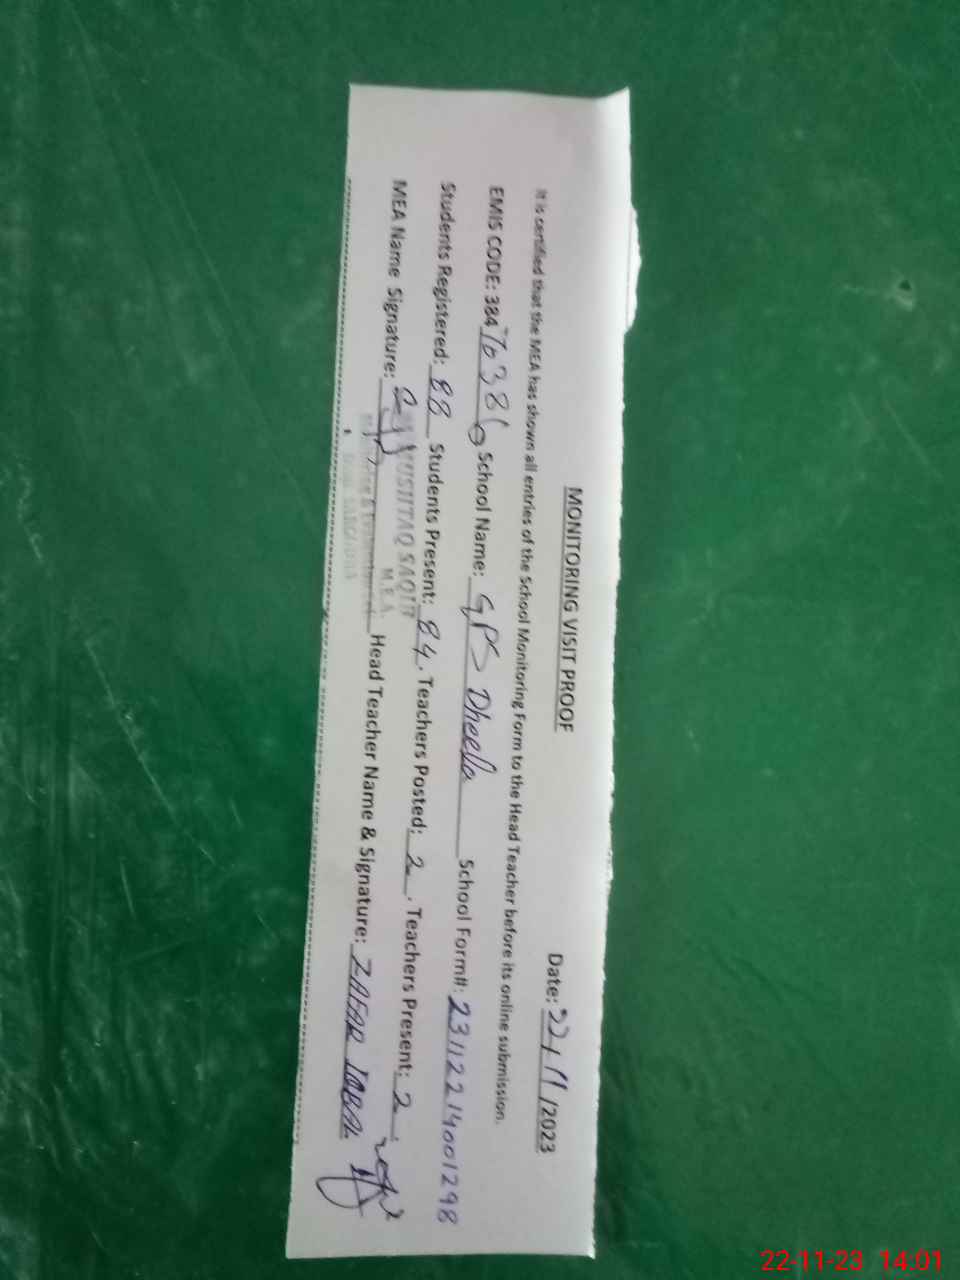 MONITORING VISIT PROOF
Date: 22/11/2023
It is certified that the MEA has shown all entries of the School Monitoring Form to the Head Teacher before its online submission.
EMIS CODE: 384 School Name: GPS Dheela School Form#: 23112214001298
Students Registered: 88 Students Present: 84. Teachers Posted: 2. Teachers Present: 2.
MEA Name Signature: Head Teacher Name & Signature: ZAFAR IQBAL
MUSHTAQ SAQIB
M.E.A.
22-11-23 14:01